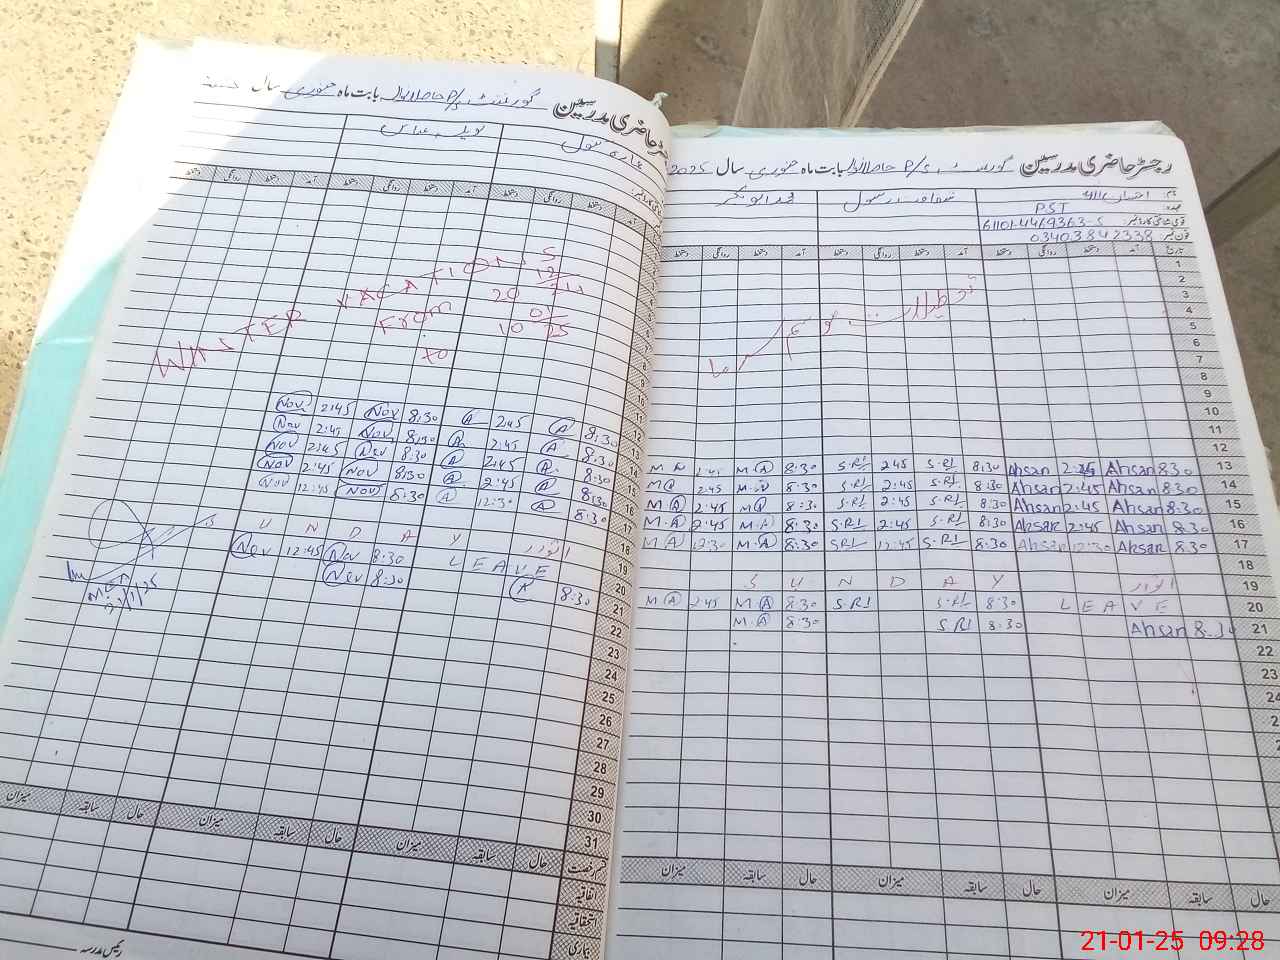 رجسٹر حاضری مدرسین گورنمنٹ P/S بابت ماہ جنوری سال 2025
نام:
شفاقت رسول
محمد ابوبکر
عہدہ: PST
قومی شناختی کارڈ نمبر: 61101-4469363-5
فون نمبر: 03403842338
تاریخ آمد دستخط روانگی دستخط آمد دستخط روانگی دستخط آمد دستخط روانگی دستخط
1
2
3
4
5
6
7
8
9
10
11
12
تعطیلات موسم سرما
13 8:30 Ahsan 2:45 Ahsan 8:30 S.R1 2:45 S.R1 8:30 M A 2:45 M A
14 8:30 Ahsan 2:45 Ahsan 8:30 S.R1 2:45 S.R1 8:30 M A 2:45 M A
15 8:30 Ahsan 2:45 Ahsan 8:30 S.R1 2:45 S.R1 8:30 M A 2:45 M A
16 8:30 Ahsan 2:45 Ahsan 8:30 S.R1 2:45 S.R1 8:30 M.A 2:45 M.A
17 8:30 Ahsan 12:30 Ahsan 8:30 S.R1 12:45 S.R1 8:30 M.A 12:30 M A
18
19 اتوار S U N D A Y
20 L E A V E 8:30 S.R1 S.R1 8:30 M A 2:45 M A
21 8:30 Ahsan 8:30 S.R1 8:30 M.A
22
23
24
حال سابقہ میزان حال سابقہ میزان حال سابقہ میزان
رجسٹر حاضری مدرسین گورنمنٹ P/S بابت ماہ جنوری سال
نویلہ عباس
آمد دستخط روانگی دستخط آمد دستخط روانگی دستخط آمد دستخط روانگی دستخط
WINTER VACATIONS
From 20 12
to 10 01 25
8:30 A 2:45 A 8:30 Nov 2:45 Nov
8:30 A 2:45 A 8:30 Nov 2:45 Nov
8:30 A 2:45 A 8:30 Nov 2:45 Nov
8:30 A 2:45 A 8:30 Nov 2:45 Nov
8:30 A 12:30 A 8:30 Nov 12:45 Nov
اتوار U N D A Y
L E A V E 8:30 Nov 12:45 Nov
8:30 A 8:30 Nov
MEA
21/1/25
12
14
15
16
17
18
19
20
21
22
23
24
25
26
27
28
29
30
31
حال سابقہ میزان حال سابقہ میزان حال سابقہ میزان
قسم رخصت
اتفاقیہ
استحقاقیہ
بیماری
رئیس مدرسہ
21-01-25 09:28